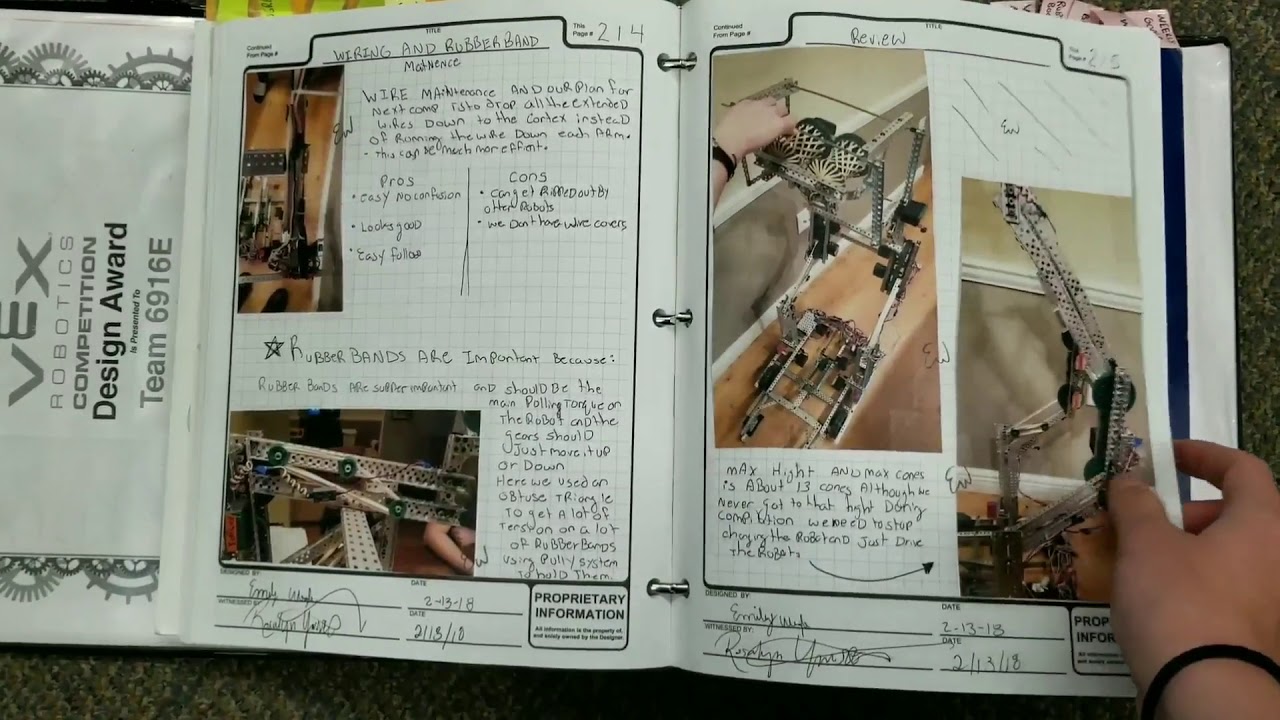 VEX
ROBOTICS
COMPETITION
Design Award
Is Presented To
Team 6916E
Continued
From Page #
TITLE
WIRING AND RUBBERBAND
Matnence
This
Page # 214
WIRE MAINtenance AND OUR PLAN FOR
Next comp is to drop all the extended
wires Down to the Cortex instead
of Running the wire Down each ARM.
- this can be much more effient.
Pros
• easy No confusion
• Looks good
• Easy follow
Cons
• can get Ripped out By
other Robots
• we Don't have wire covers
EW
☆ RUBBER BANDS ARE Important Because:
RUBBER BANDS ARE supper important and should BE the
main Polling Torque on
The Robot and the
gears should
Just move it up
or Down
Here we used an
obtuse TRiangle
To get A lot of
Tension on a lot
of RubberBands
using Pully system
To hold Them.
DESIGNED BY:
DATE
2-13-18
WITNESSED BY:
DATE
PROPRIETARY
INFORMATION
All information is the property of,
and solely owned by the Designer.
Continued
From Page #
TITLE
Review
This
Page # 215
EW
EW
EW
mAX Hight AND max cones
is ABout 13 cones Although we
Never got to that hight During
Compitution we need to stop
changing the Robot and Just Drive
The Robots
DESIGNED BY:
DATE
2-13-18
WITNESSED BY:
DATE
2/13/18
PROP
INFOR